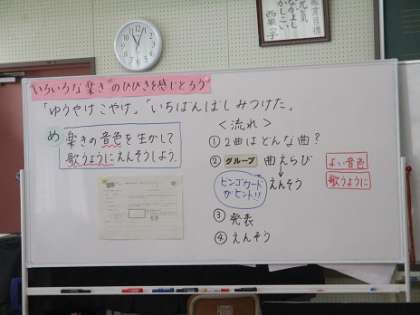 "いろいろな楽き"のひびきを感じとろう
「ゆうやけこやけ」「いちばんぼしみつけた」
め
楽きの音色を生かして
歌うようにえんそうしよう
<流れ>
① 2曲はどんな曲?
② グループ 曲えらび
↓
えんそう
ビンゴカード
がヒント!!
③ 発表
④ えんそう
よい音色
歌うように